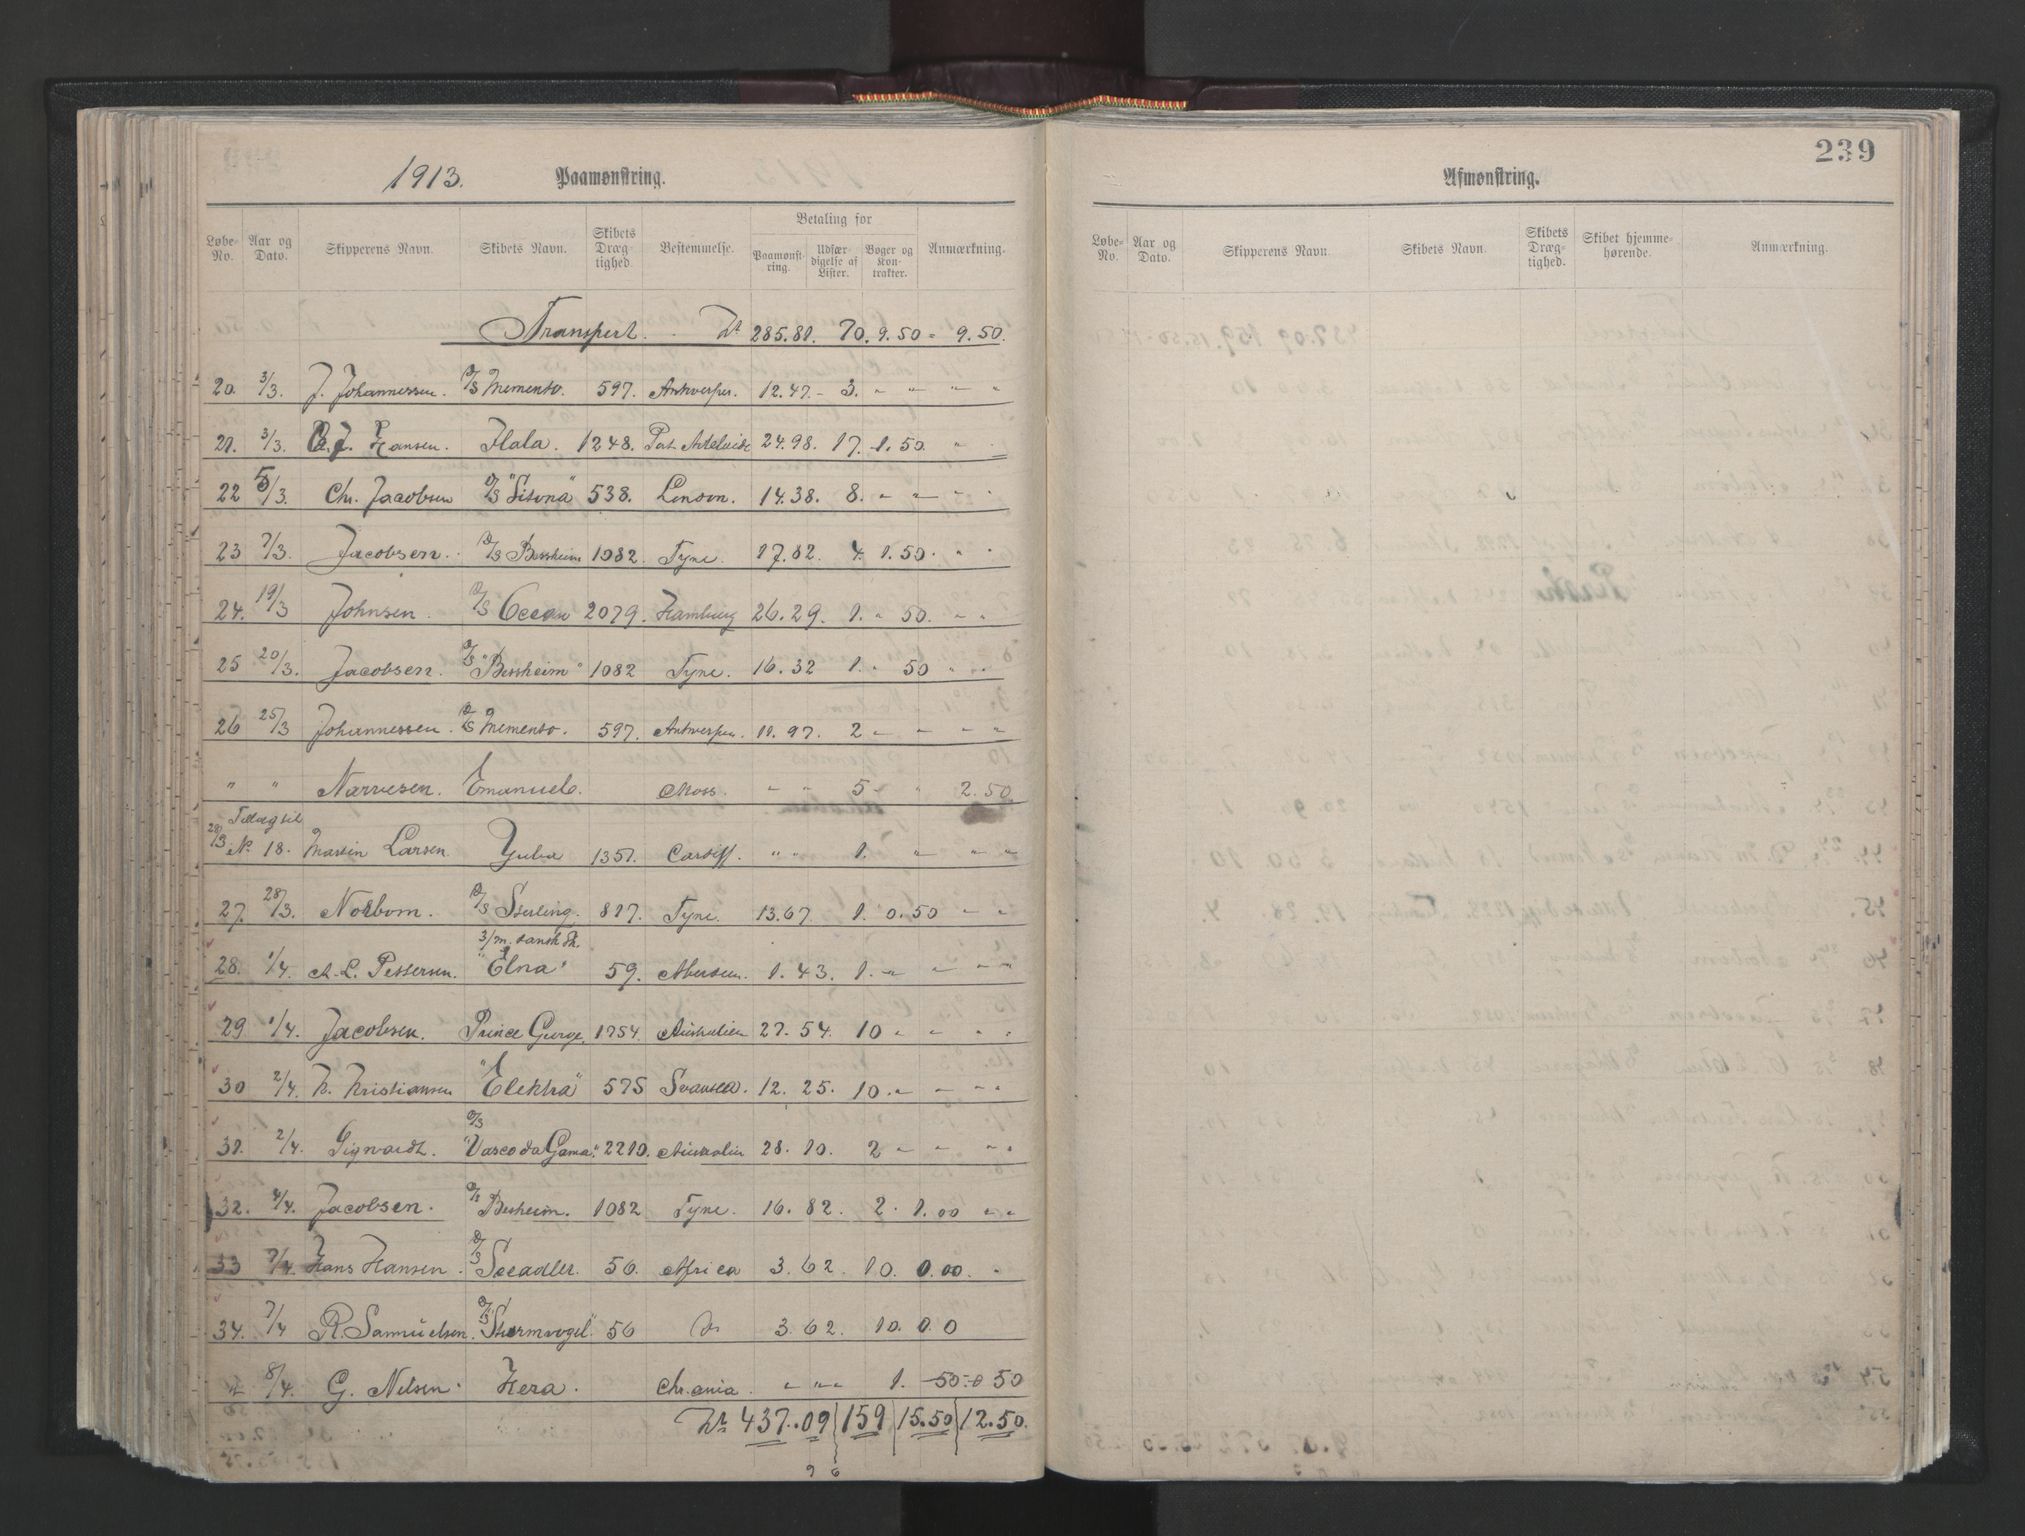 1913. Paamønstring.
Løbe-No. Aar og Dato. Skipperens Navn. Skibets Navn. Skibets Dræg-tighed. Bestemmelse. Betaling for Paamønst-ring. Udfær-digelse af Lister. Bøger og Kon-trakter. Anmærkning.
Transport. Kr 285.81. 70. 9.50 " 9.50.
20. 3/3. J. Johannessen. D/S Memento. 597. Antwerpen. 12.47. - 3. " " " "
21. 3/3. J. Hansen. Flala. 1248. Port Adelaide 24.98. 17. 1.50. "
22 5/3. Chr. Jacobsen D/S "Sitona" 538. London. 14.38. 8. " " " "
23 7/3. Jacobsen. D/S Bessheim 1082. Tyne. 17.82. 4. 1.50. " "
24. 19/3 Johnsen. D/S Ocean 2079. Hamburg 26.29. 1. " 50. " "
25 20/3. Jacobsen. D/S "Bessheim" 1082 Tyne. 16.32 1. " 50 " "
26 25/3 Johannessen. D/S Memento. 597. Antwerpen. 11.97. 2 " " " "
" " Narvesen. Emanuel. Moss. " " 5 - " 2.50.
28/3 Tillæg til No 18. Martin Larsen. Yuba 1351. Cardiff. " " 1. " " "
27. 28/3. Norbom. D/S Sterling. 817. Tyne. 13.67. 1. 0.50 " "
28. 1/4. A. L. Pettersen. 3/m. dansk Sk. "Elna" 59. Aberdeen. 1.43. 1. " " " "
29. 1/4. Jacobsen. Prince George. 1754. Australien 27.54. 10 " " " "
30 2/4. K. Kristiansen "Elektra" 575 Svansea. 12.25. 10. " " " "
31. 2/4. Sigvardt. D/S "Vasco da Gama". 2210. Australien 28.10. 2 " " " "
32. 4/4. Jacobsen. D/S Bessheim. 1082 Tyne. 16.82. 2. 1.00 " "
33 7/4. Hans Hansen. D/S Seeadler. 56. Africa 3.62. 10. 0.00. "
34. 7/4 R. Samuelsen. D/S "Sturmvogel" 56 do 3.62. 10. 0.0
8/4. G. Nilsen. Hera. Chr.ania. " " " 1. -50 - 0 50
Kr 437.09 159 15.50 12.50.
9 6
239
Afmønstring.
Løbe-No. Aar og Dato. Skipperens Navn. Skibets Navn. Skibets Dræg-tighed. Skibet hjemme-hørende. Anmærkning.